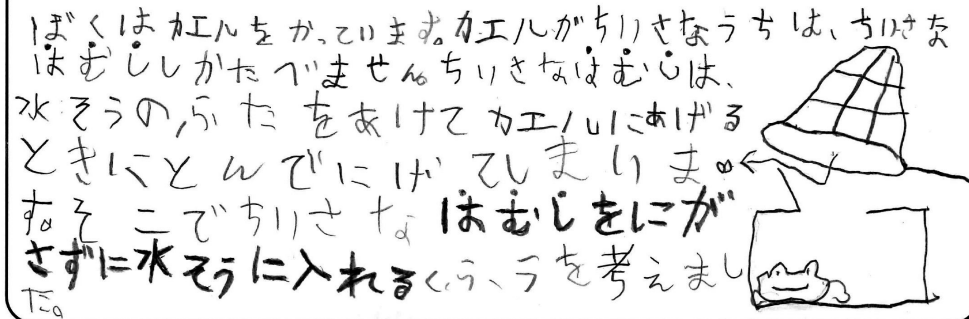 ぼくはカエルをかっています。カエルがちいさなうちは、ちいさな
はむししかたべません。ちいさなはむしは、
水そうの、ふたをあけてカエルにあげる
ときにとんでにげてしまいま
す。そこでちいさなはむしをにが
さずに水そうに入れるくふうを考えまし
た。